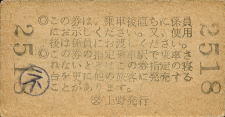 2518
◎この券は、乗車後直ちに係員
にお示しください。又、使用
後は係員にお渡しください。
◎この券の指定乗車駅で乗車さ
れないときはこの券指定の寝
台を他の旅客に発売する
ことがあります。
上野発行
2518